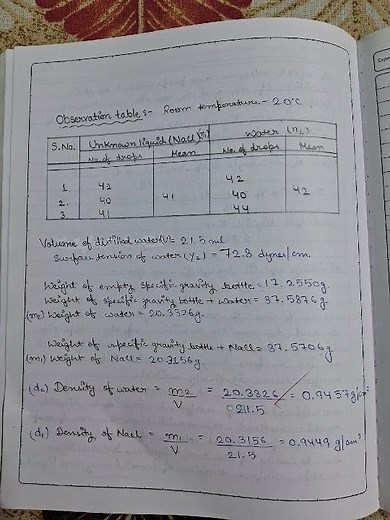 Observation table :- Room temperature - 20°C
S.No. Unknown liquid (NaCl) (n₁) Water (n₂)
No. of drops Mean No. of drops Mean
1. 42 42
2. 40 41 40 42
3. 41 44
Volume of distilled water (V) = 21.5 ml
Surface tension of water (γ₂) = 72.8 dynes/cm.
Weight of empty specific gravity bottle = 17.2550g.
Weight of specific gravity bottle + water = 37.5876g.
(m₂) Weight of water = 20.3326g.
Weight of specific gravity bottle + NaCl = 37.5706g
(m₁) Weight of NaCl = 20.3156g
(d₂) Density of water = m₂/V = 20.3326/21.5 = 0.9457g/cm³
(d₁) Density of NaCl = m₁/V = 20.3156/21.5 = 0.9449 g/cm³